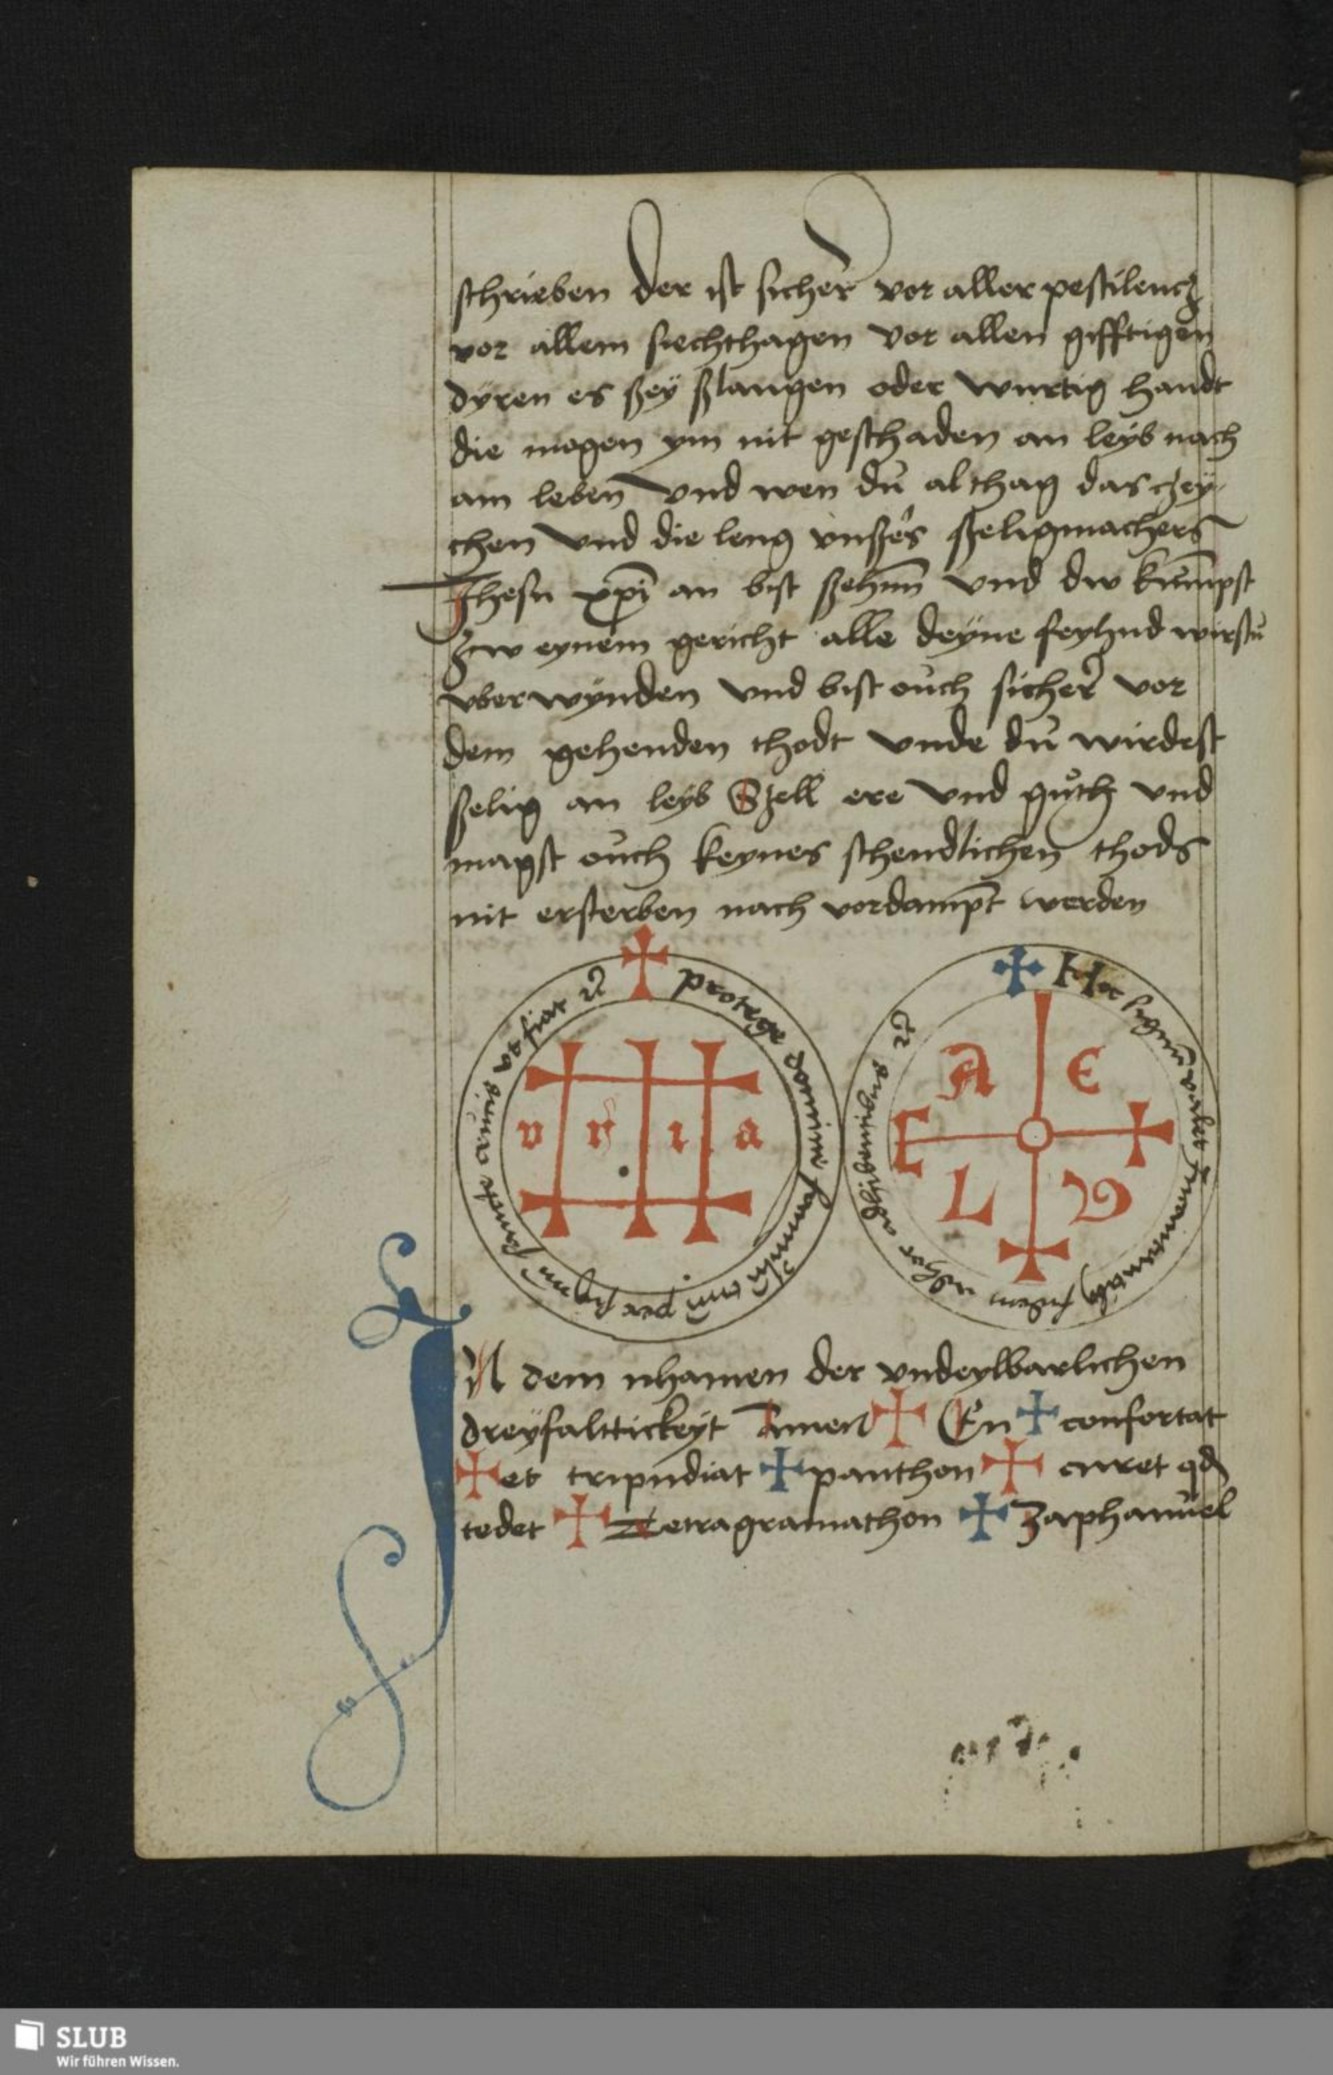 schrieben der ist sicher vor aller pestilencz
vor allem siechthagen vor allen gifftigen
dÿren es sey slangen oder wurtig handt
die mogen ym nit geschaden an leyb nach
am leben vnd wen du althag das czey
chen vnd die leng vnßers ßeligmachers
Jhesu xpi an bist ßehnn vnd dw kumpst
zw eynem gericht alle deyne feyhnd wirstu
vberwynden vnd bist ouch sicher vor
dem gehenden thodt vnde du wirdest
ßelig an leyb Szell ere vnd guth vnd
magst ouch keynes schendlichen thods
nit ersterben nach vordampt werden
protege domine famulu tuu per signu sancte crucis vt fiat
v r i a
Hoc signum valet
A E
L
IN dem nhamen der vndeylbarlichen
dreyfalttickeyt Amen ✝ En ✝ confortat
✝ et tripudiat ✝ panthon ✝ curet qd
tedet ✝ Tetragramathon ✝ Zaphanuel
SLUB
Wir führen Wissen.